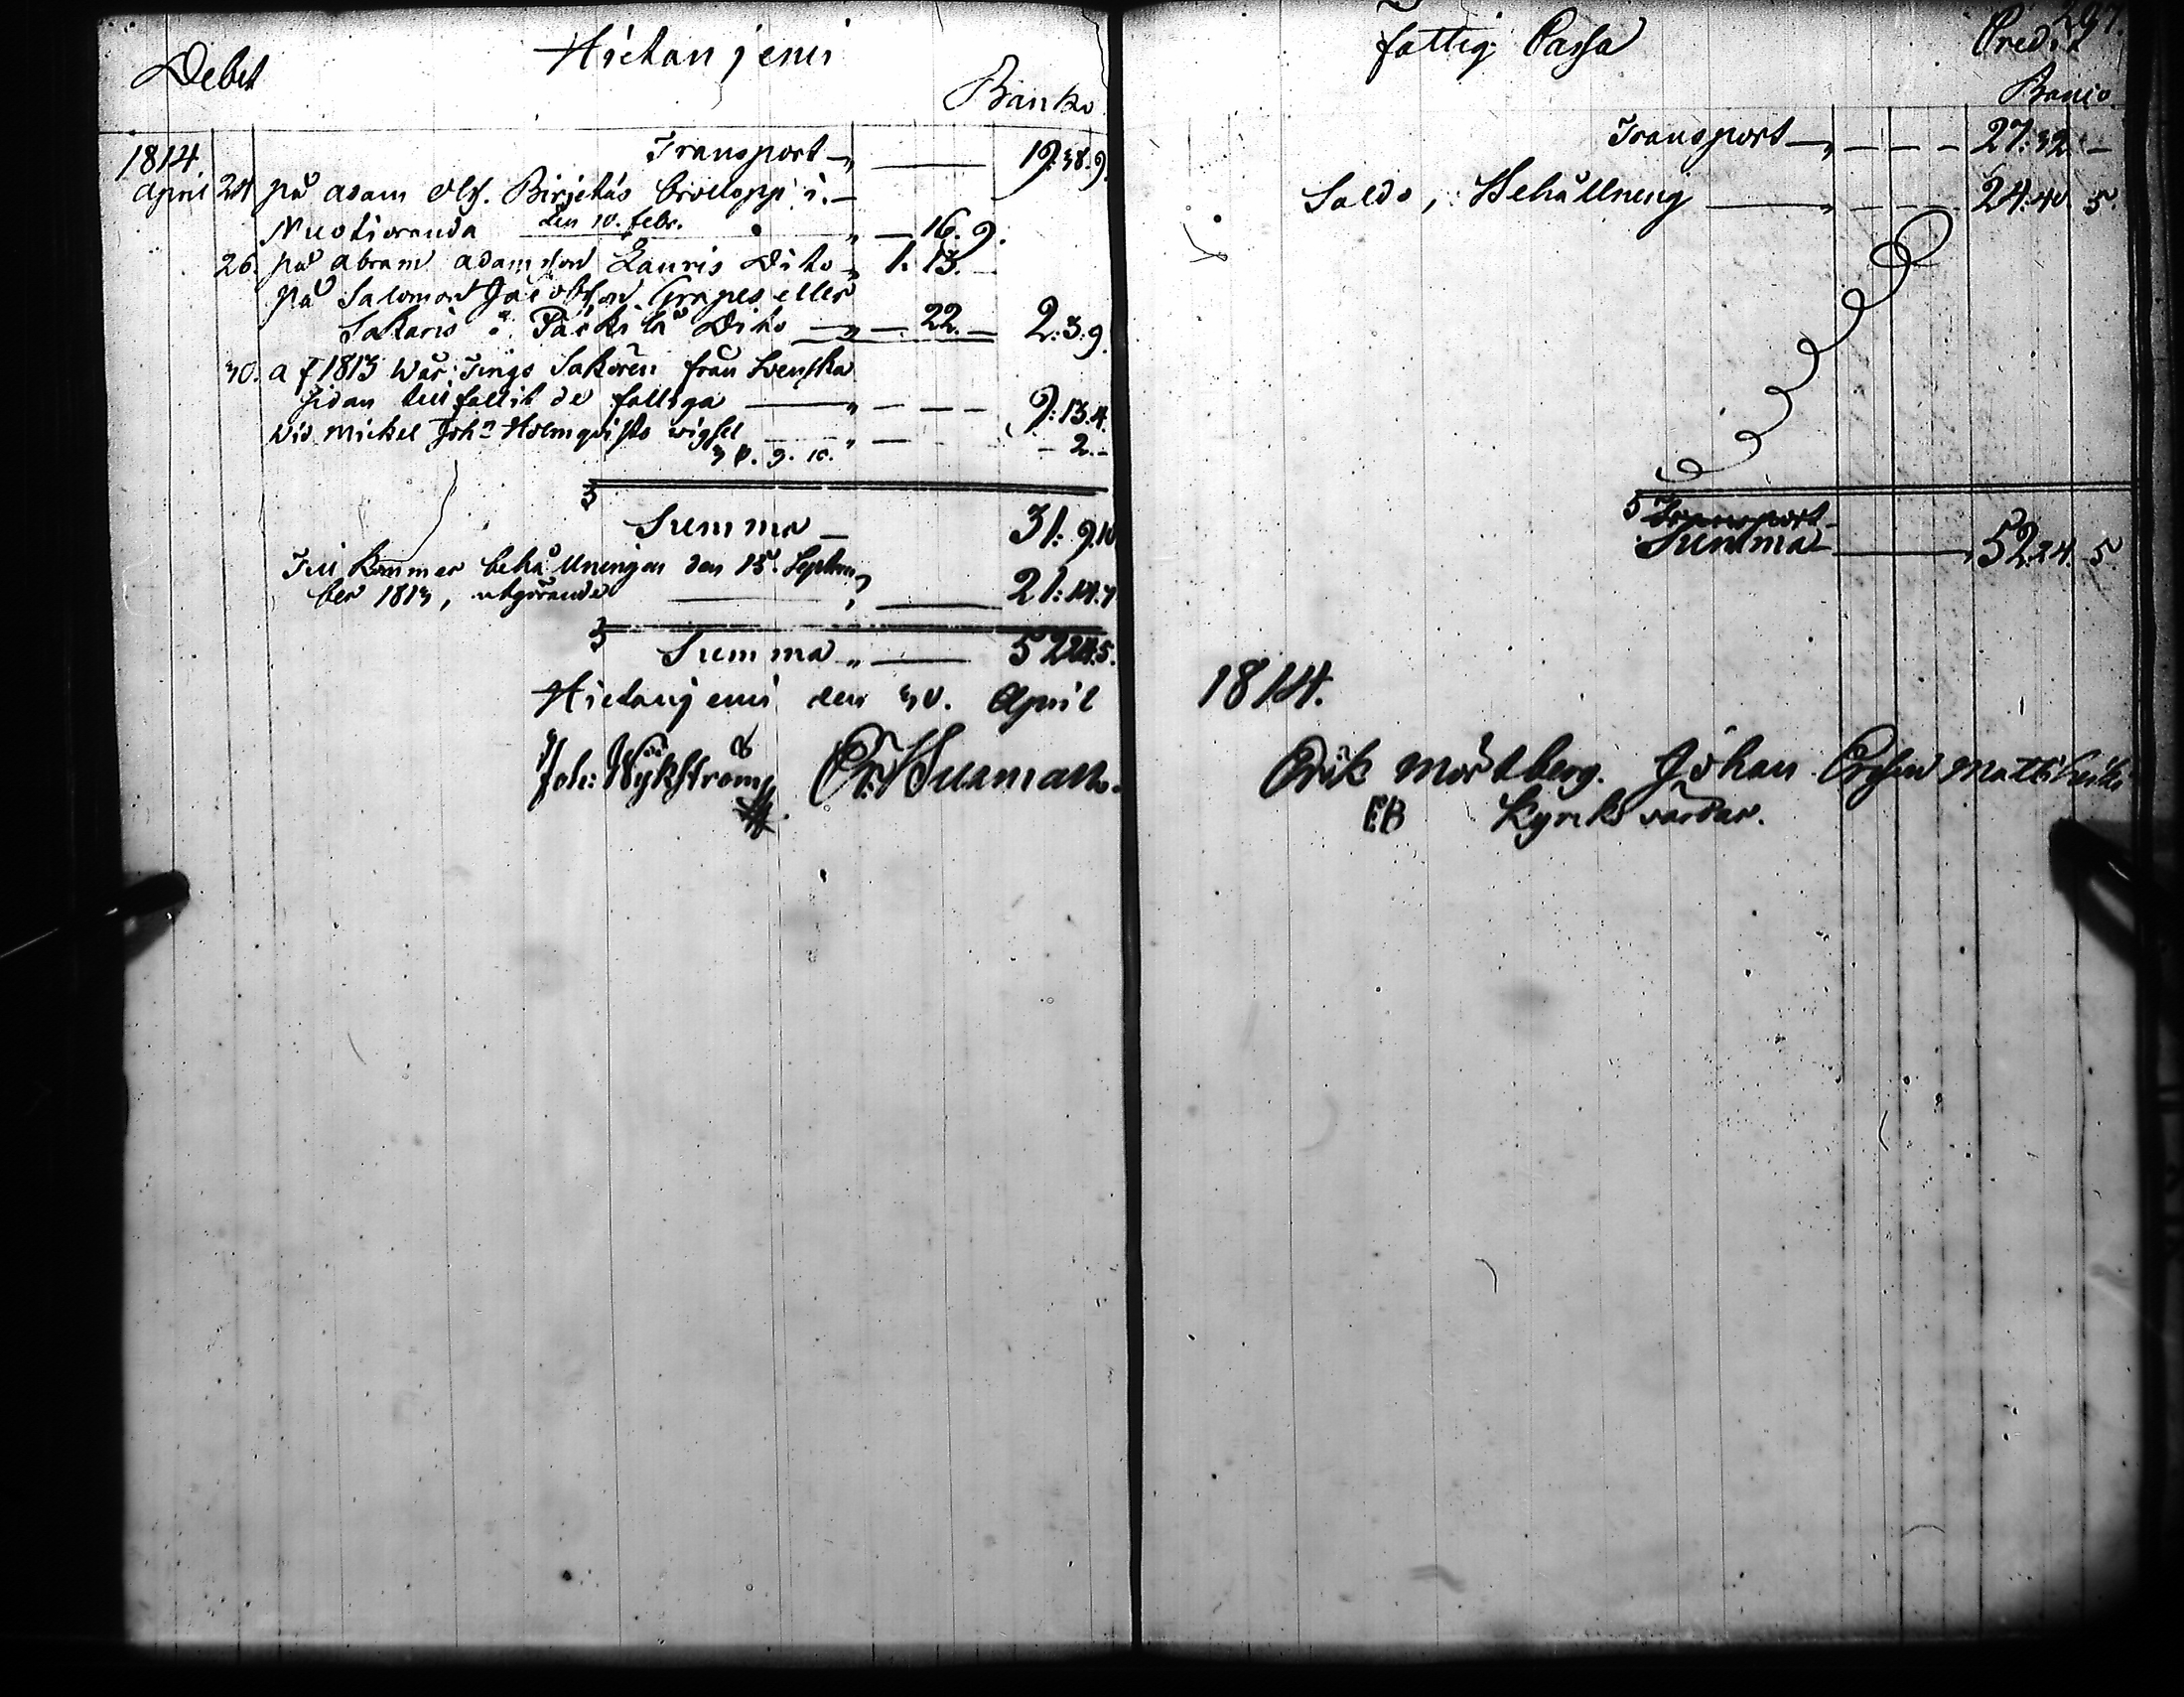 Debet Hietanjemi
Banko
1814 Transport 19:38.9.
April 24 på Adam Ols. Birjetäs Bröllopp i
Muotioranda den 10. febr. 16. 9.
26. på Abram Adamsson Lauris Dito 1. 13.
på Salomon Jacobson Grapes eller
Sakaris i Päckilä Dito 22. 2:3.9.
30. af 1813 Wår Tings Sakören från Svenska
sidan tillfallit de fattiga 9:13.4.
wid Mickel Joh:n Holmqvists wigsel 2.
31. 9. 10.
Summa 31: 9.10
Till kommer behållningen den 15. Septem
ber 1813, utgörande 21:14.7
Summa 52 24.5.
Hietanjemi den 30. April
Joh: Wykström Er. Husman
297.
fattig Cassa Credit
Banco
Transport 27:32. -
Saldo, Behållning 24:40. 5.
Transport
Summa 52:24. 5
1814.
Erik Mörtberg. Johan Ersson Matti
EB Kyrkovärdar.